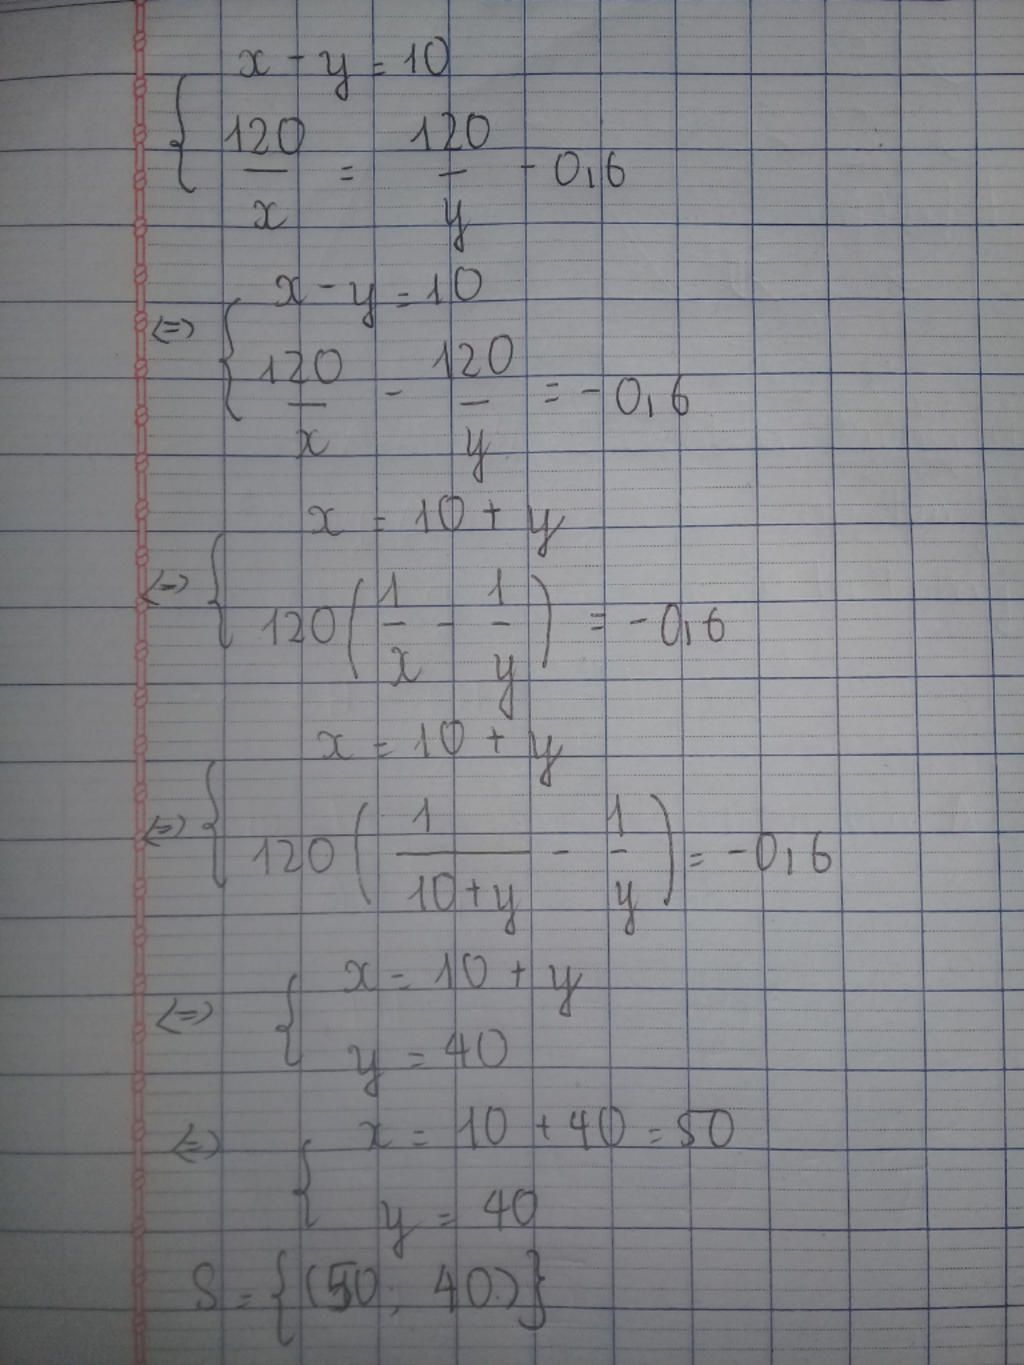 x - y = 10
120/x = 120/y - 0,6
<=> x - y = 10
120/x - 120/y = -0,6
<=> x = 10 + y
120(1/x - 1/y) = -0,6
<=> x = 10 + y
120(1/(10+y) - 1/y) = -0,6
<=> x = 10 + y
y = 40
<=> x = 10 + 40 = 50
y = 40
S = {(50; 40)}